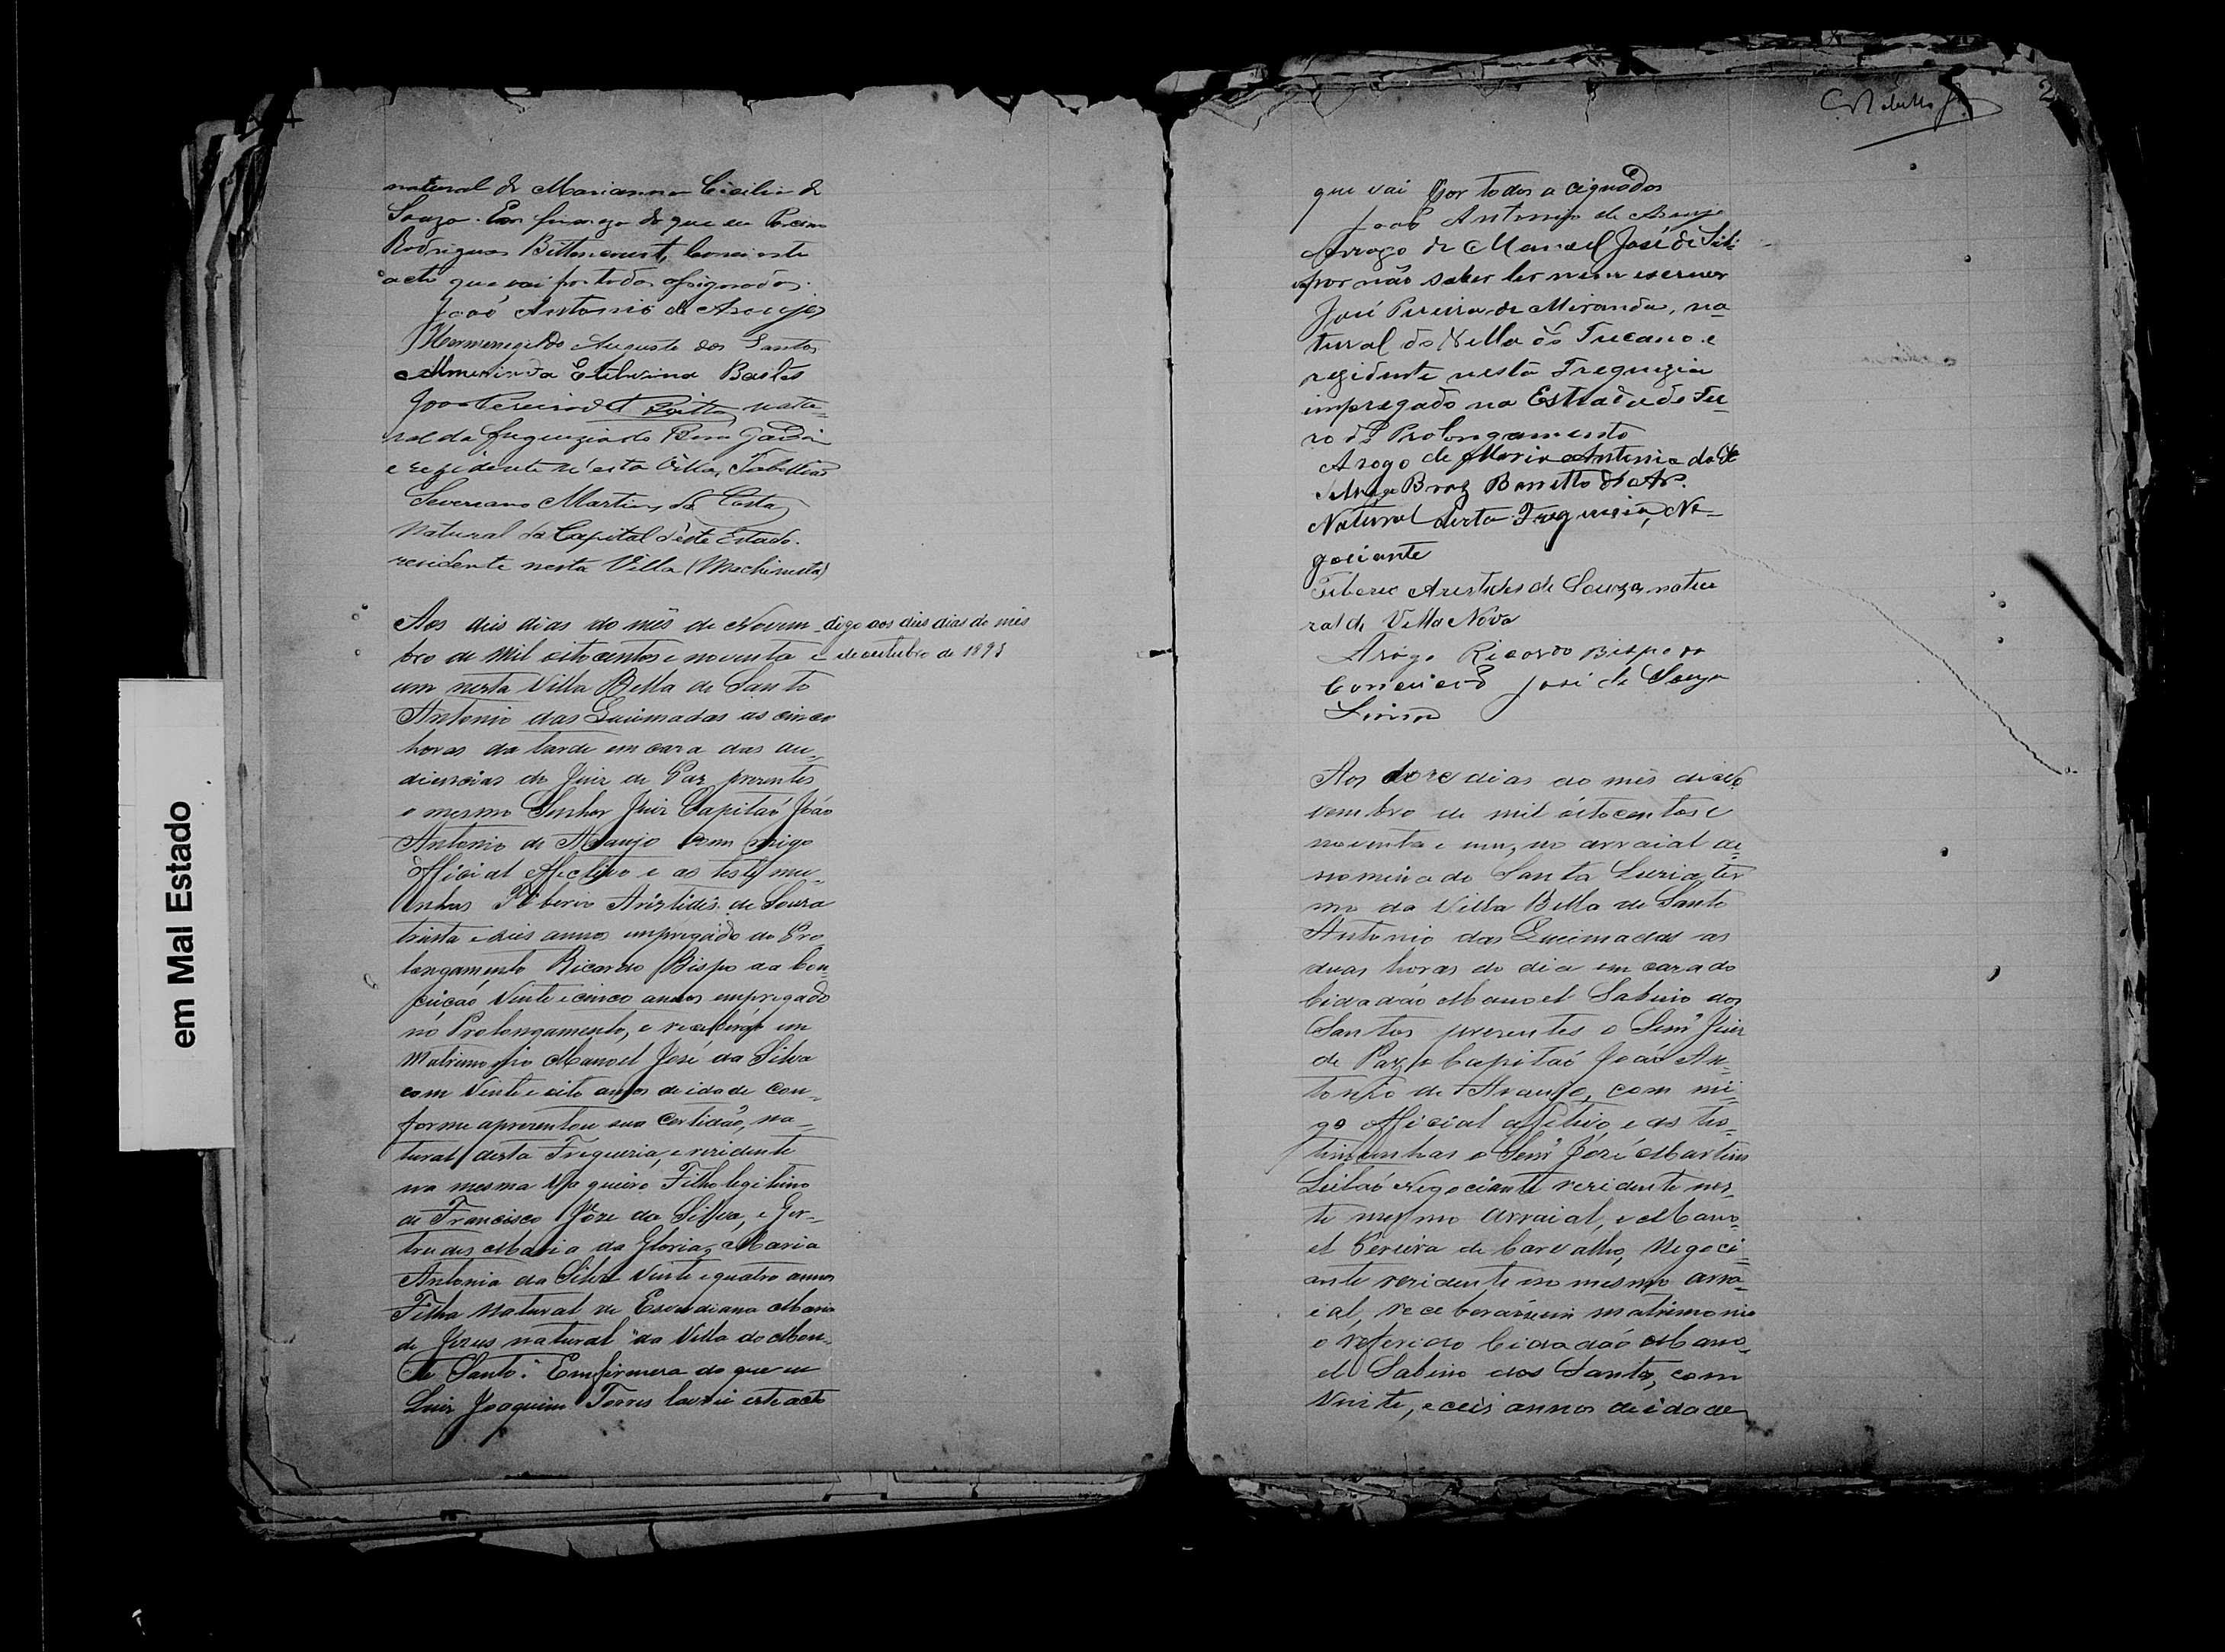 em Mal Estado
natural de Marianna Cicilia de
Souza. Em firmeza do que eu
Rodrigues Bittencourt, lavrei este
acto que vai por todos assignados.
João Antonio de Araujo
Hermenegildo Augusto dos Santos
Almerinda Etelvina Bastos
João Pereira de Britto, natu-
ral da freguezia do Bom Jardim
e rezidente n'esta Villa, Tabellião
Severeano Martins da Costa
Natural da Capital d'este Estado.
residente nesta Villa (Machinista)
Aos dois dias do mês de Novem- digo aos dois dias do mês
bro de mil oitocentos e noventa e de outubro de 1891
um nesta Villa Bella de Santo
Antonio das Queimadas as cinco
horas da tarde em caza das au-
diencias do Juiz de Paz prezentes
o mesmo Senhor Juiz Capitaó João
Antonio de Araujo com migo
Official effectivo e as testymu-
nhas Tiberio Aristides de Souza
trinta e dois annos empregado do Pro
longamento Ricardo Bispo da Con-
ceicaó Vinte e cinco annos empregado
no Prolongamento, e receberão em
Matrimonio Manoel José da Silva
com Vinte e oito annos de idade con-
forme aprezentou sua Certidaõ, na-
tural desta Freguezia, e rezidente
na mesma Vaqueiro Filho legitimo
de Francisco Józe da Silva, e Ger-
trudes Maria da Gloria, Maria
Antonia da Silva Vinte e quatro annos
Filha Natural de Escudiana Maria
de Jezus natural da Villa do Mon-
te Santo. Em firmeza do que eu
Luiz Joaquim Torres lavrei este acto
2
que vai por todos acignados
João Antonio de Araujo
Arrogo de Manoel José da Sil-
va por não saber ler nem escrever
José Pereira de Miranda, na
tural da Villa do Tucano e
rezidente nesta Freguezia
impregado na Estrada de Fer-
ro do Prolongamento
Arogo de Maria Antonia da
Silva Braz Barretto
Natural desta Freguezia, Ne-
gociante
Tiberio Aristides de Souza natu
ral de Villa Nova
Arogo Ricardo Bispo da
Conceicão José de Souza
Aos doze dias do mês de No
vembro de mil óitocentos e
noventa e um, no arraial de-
nominado Santa Luzia, ter
mo da Villa Bella de Santo
Antonio das Queimadas as
duas horas do dia em caza do
Cidadão Manoel Sabino dos
Santos prezentes o Senr Juiz
de Paz, o Capitaó João An-
tonio de Araujo, com mi-
go Official effetivo, e as tes-
timunhas o Senr Józé Martins
Leitaó Negociante rezidente nes-
te mesmo arraial, e Mano-
el Pereira de Carvalho, Negoci-
ante rezidente no mesmo arra-
ial, receberaó em matrimonio
o referido Cidadão Mano-
el Sabino dos Santos, com
Vinte, e ceis annos de idade